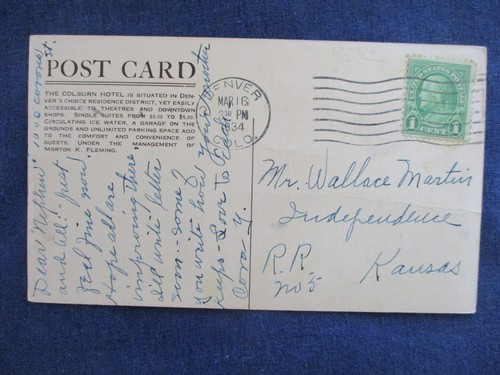 POST CARD
THE COLBURN HOTEL IS SITUATED IN DEN-
VER'S CHOICE RESIDENCE DISTRICT, YET EASILY
ACCESSIBLE TO THEATRES AND DOWNTOWN
SHOPS. SINGLE SUITES FROM $3.00 TO $5.00.
CIRCULATING ICE WATER, A GARAGE ON THE
GROUNDS AND UNLIMITED PARKING SPACE ADD
TO THE COMFORT AND CONVENIENCE OF
GUESTS. UNDER THE MANAGEMENT OF
MORTON K. FLEMING.
DENVER
MAR 16
PM
1934
COLO.
1 CENT 1
Mr. Wallace Martin
Independence
R.R. Kansas
No 5
Corona St.
Dear Nephew
and all: Just
feel fine now.
Hope all are
improving there
I'll write letter
soon - some?
you write how your
keeps Love to
Cora Y.